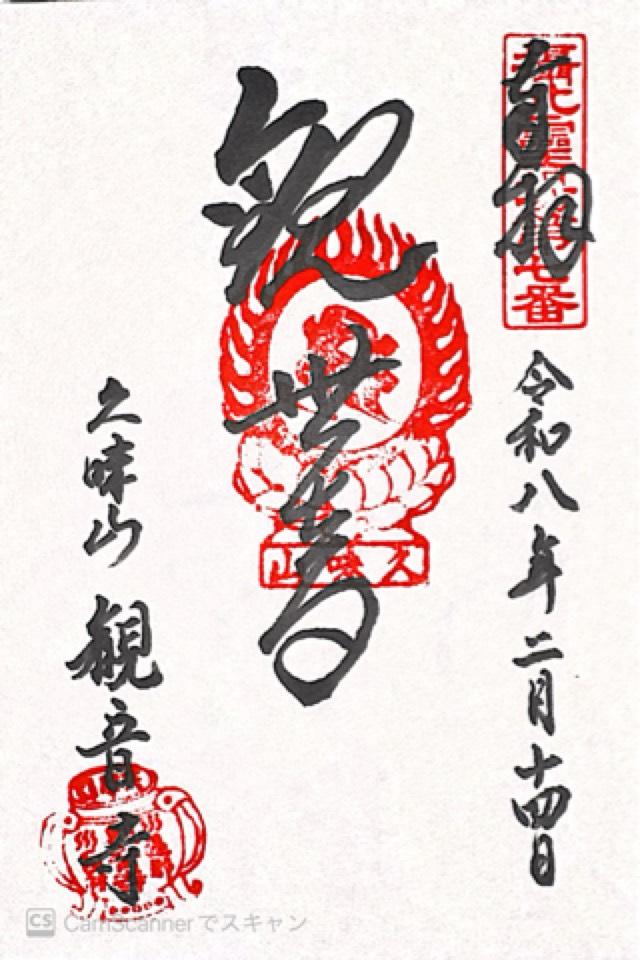 奉拝
令和八年二月十四日
観世音
久味山
久味山 観音寺
CS CamScannerでスキャン